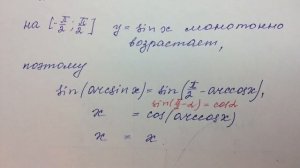 на [-π/2; π/2] y = sin x монотонно
возрастает,
поэтому
sin(arcsin x) = sin(π/2 - arccos x),
sin(π/2-α) = cosα
x = cos(arccos x)
x = x